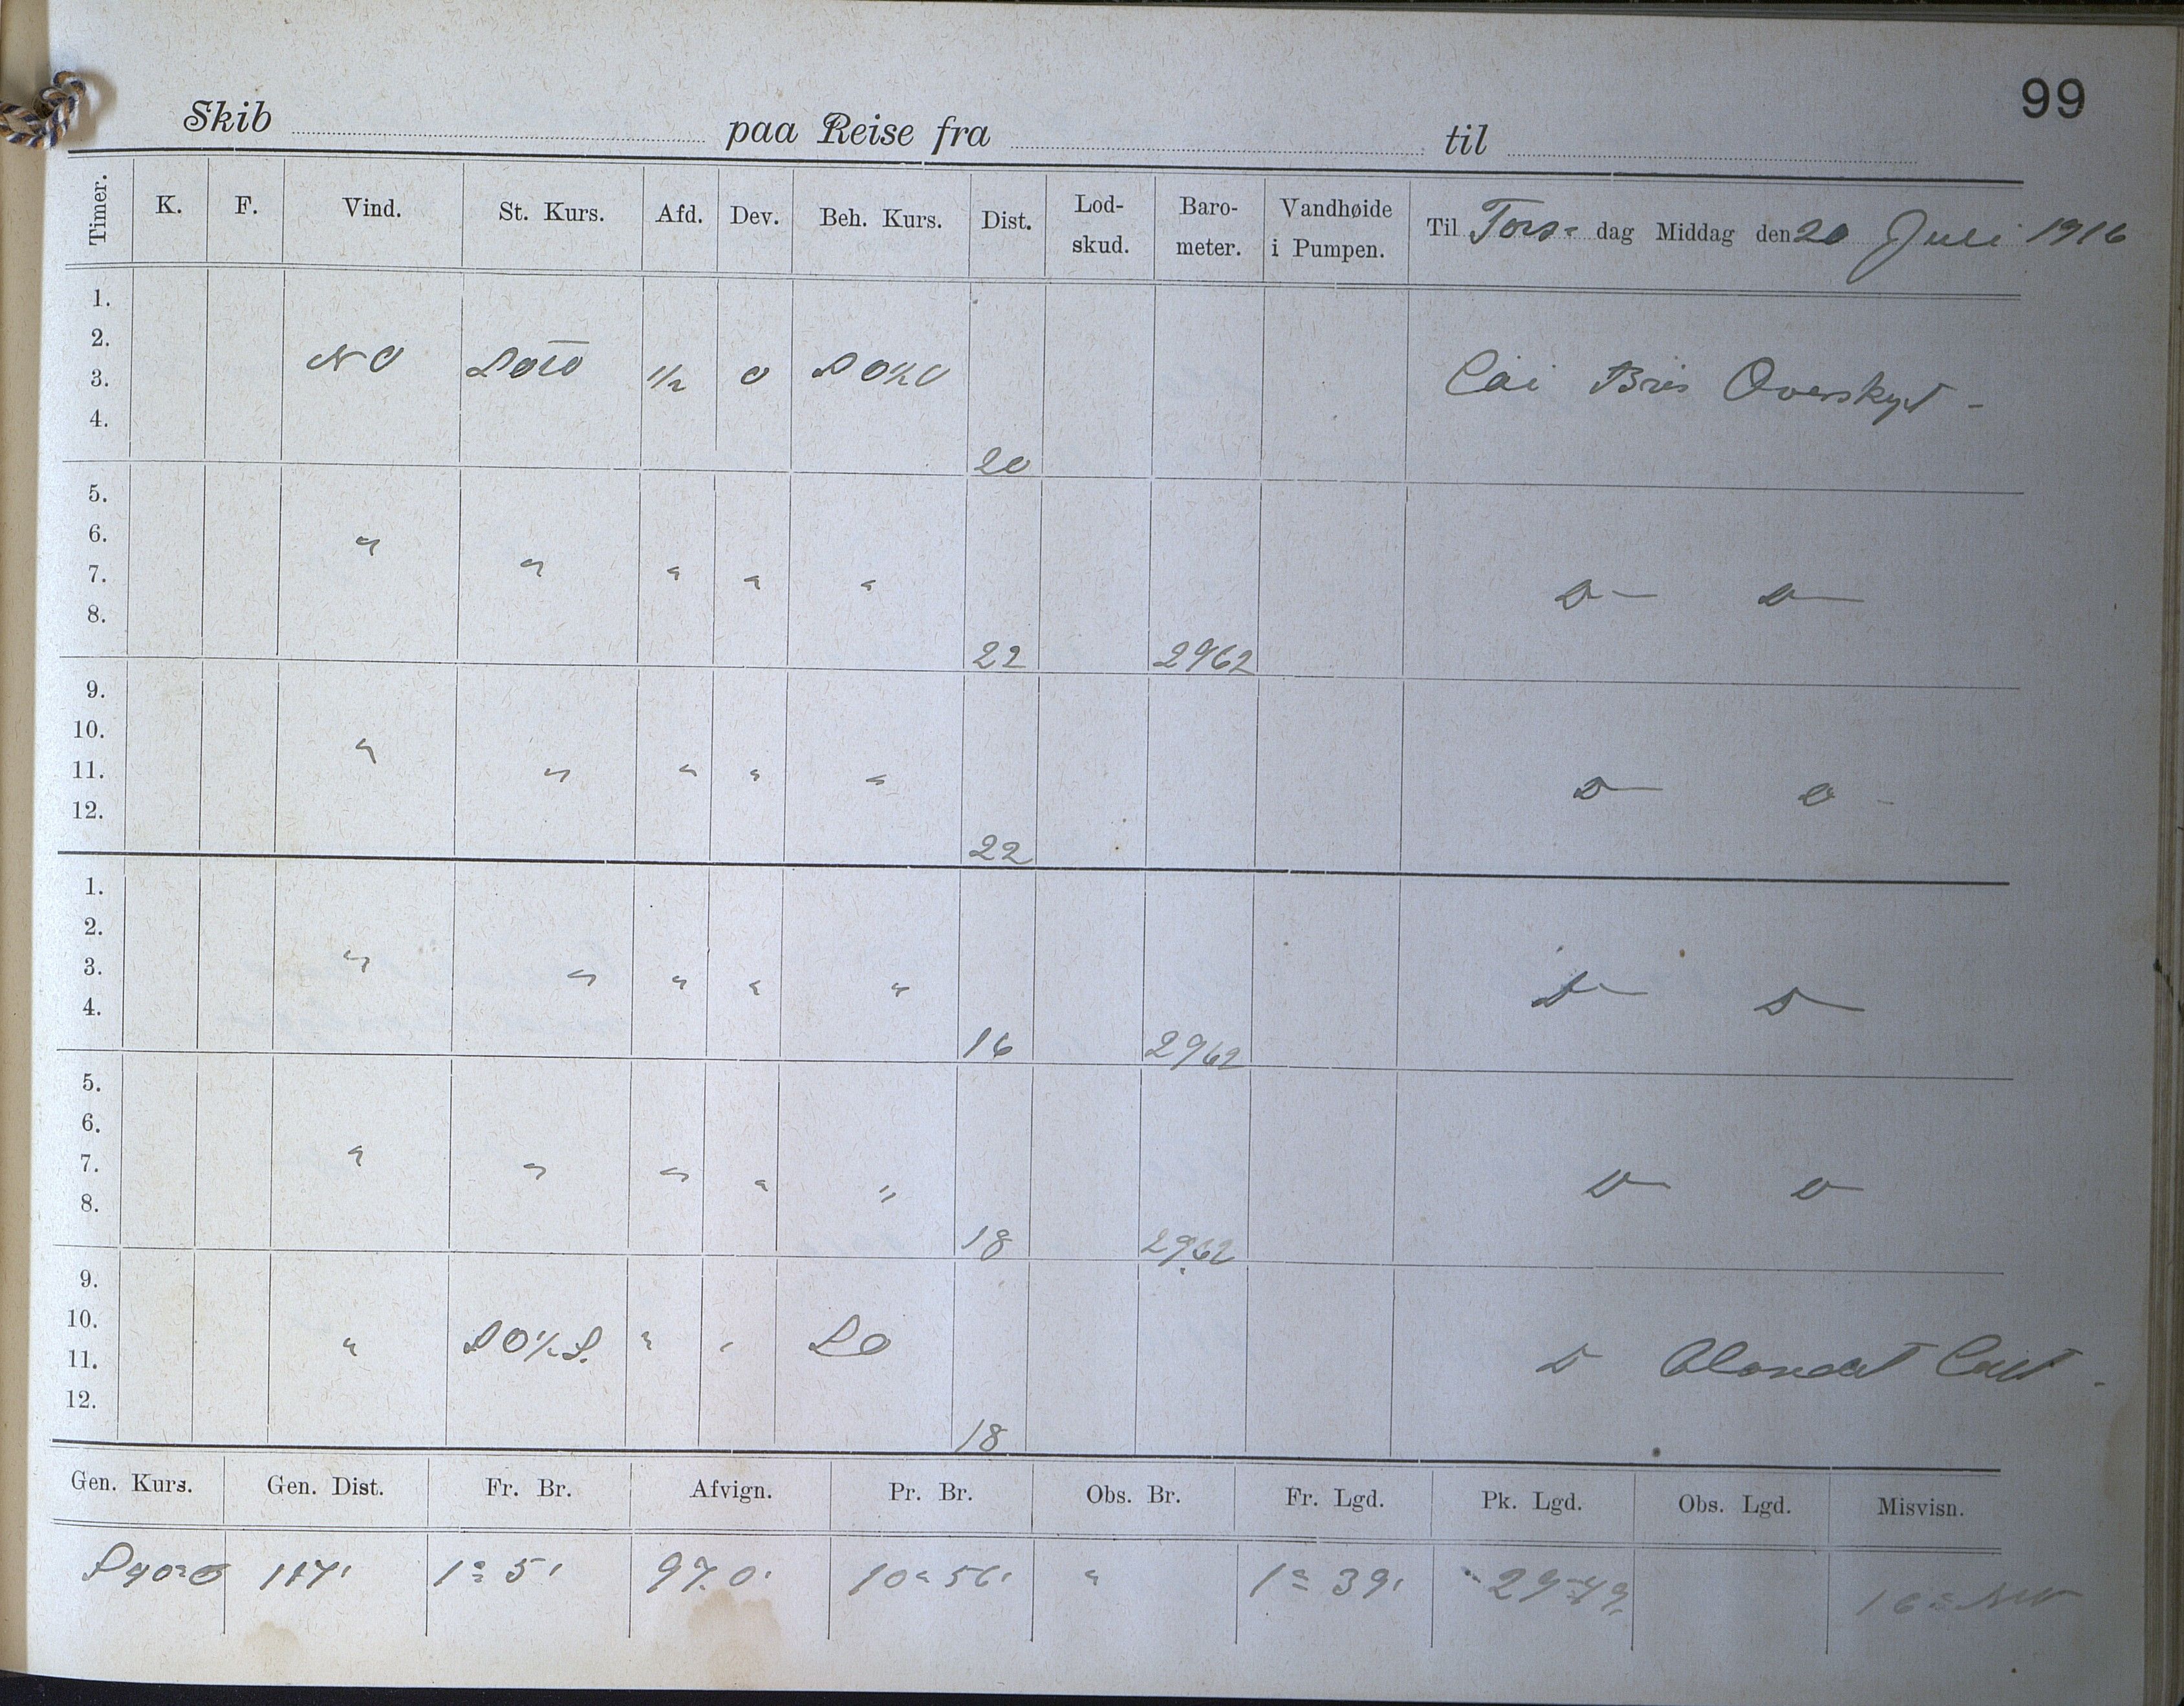 99
Skib paa Reise fra til
Timer. K. F. Vind. St. Kurs. Afd. Dev. Beh. Kurs. Dist. Lod-skud. Baro-meter. Vandhøide i Pumpen. Til Tors- dag Middag den 20 Juli 1916
1.
2.
3. NO 1/2 0 Lai Bris Overskyt -
4.
20
5.
6. "
7. " " " " D- D-
8.
22 2962
9.
10. "
11. " " " " D- D-
12.
22
1.
2.
3. " " " " " D- D-
4.
16 2962
5.
6.
7. " " " " " D- D-
8.
18 2962
9.
10.
11. " SO1/2S. " " SO D
12.
18
Gen. Kurs. Gen. Dist. Fr. Br. Afvign. Pr. Br. Obs. Br. Fr. Lgd. Pk. Lgd. Obs. Lgd. Misvisn.
1° 5' 97.0' 10° 56' " 1° 39' 29-49'